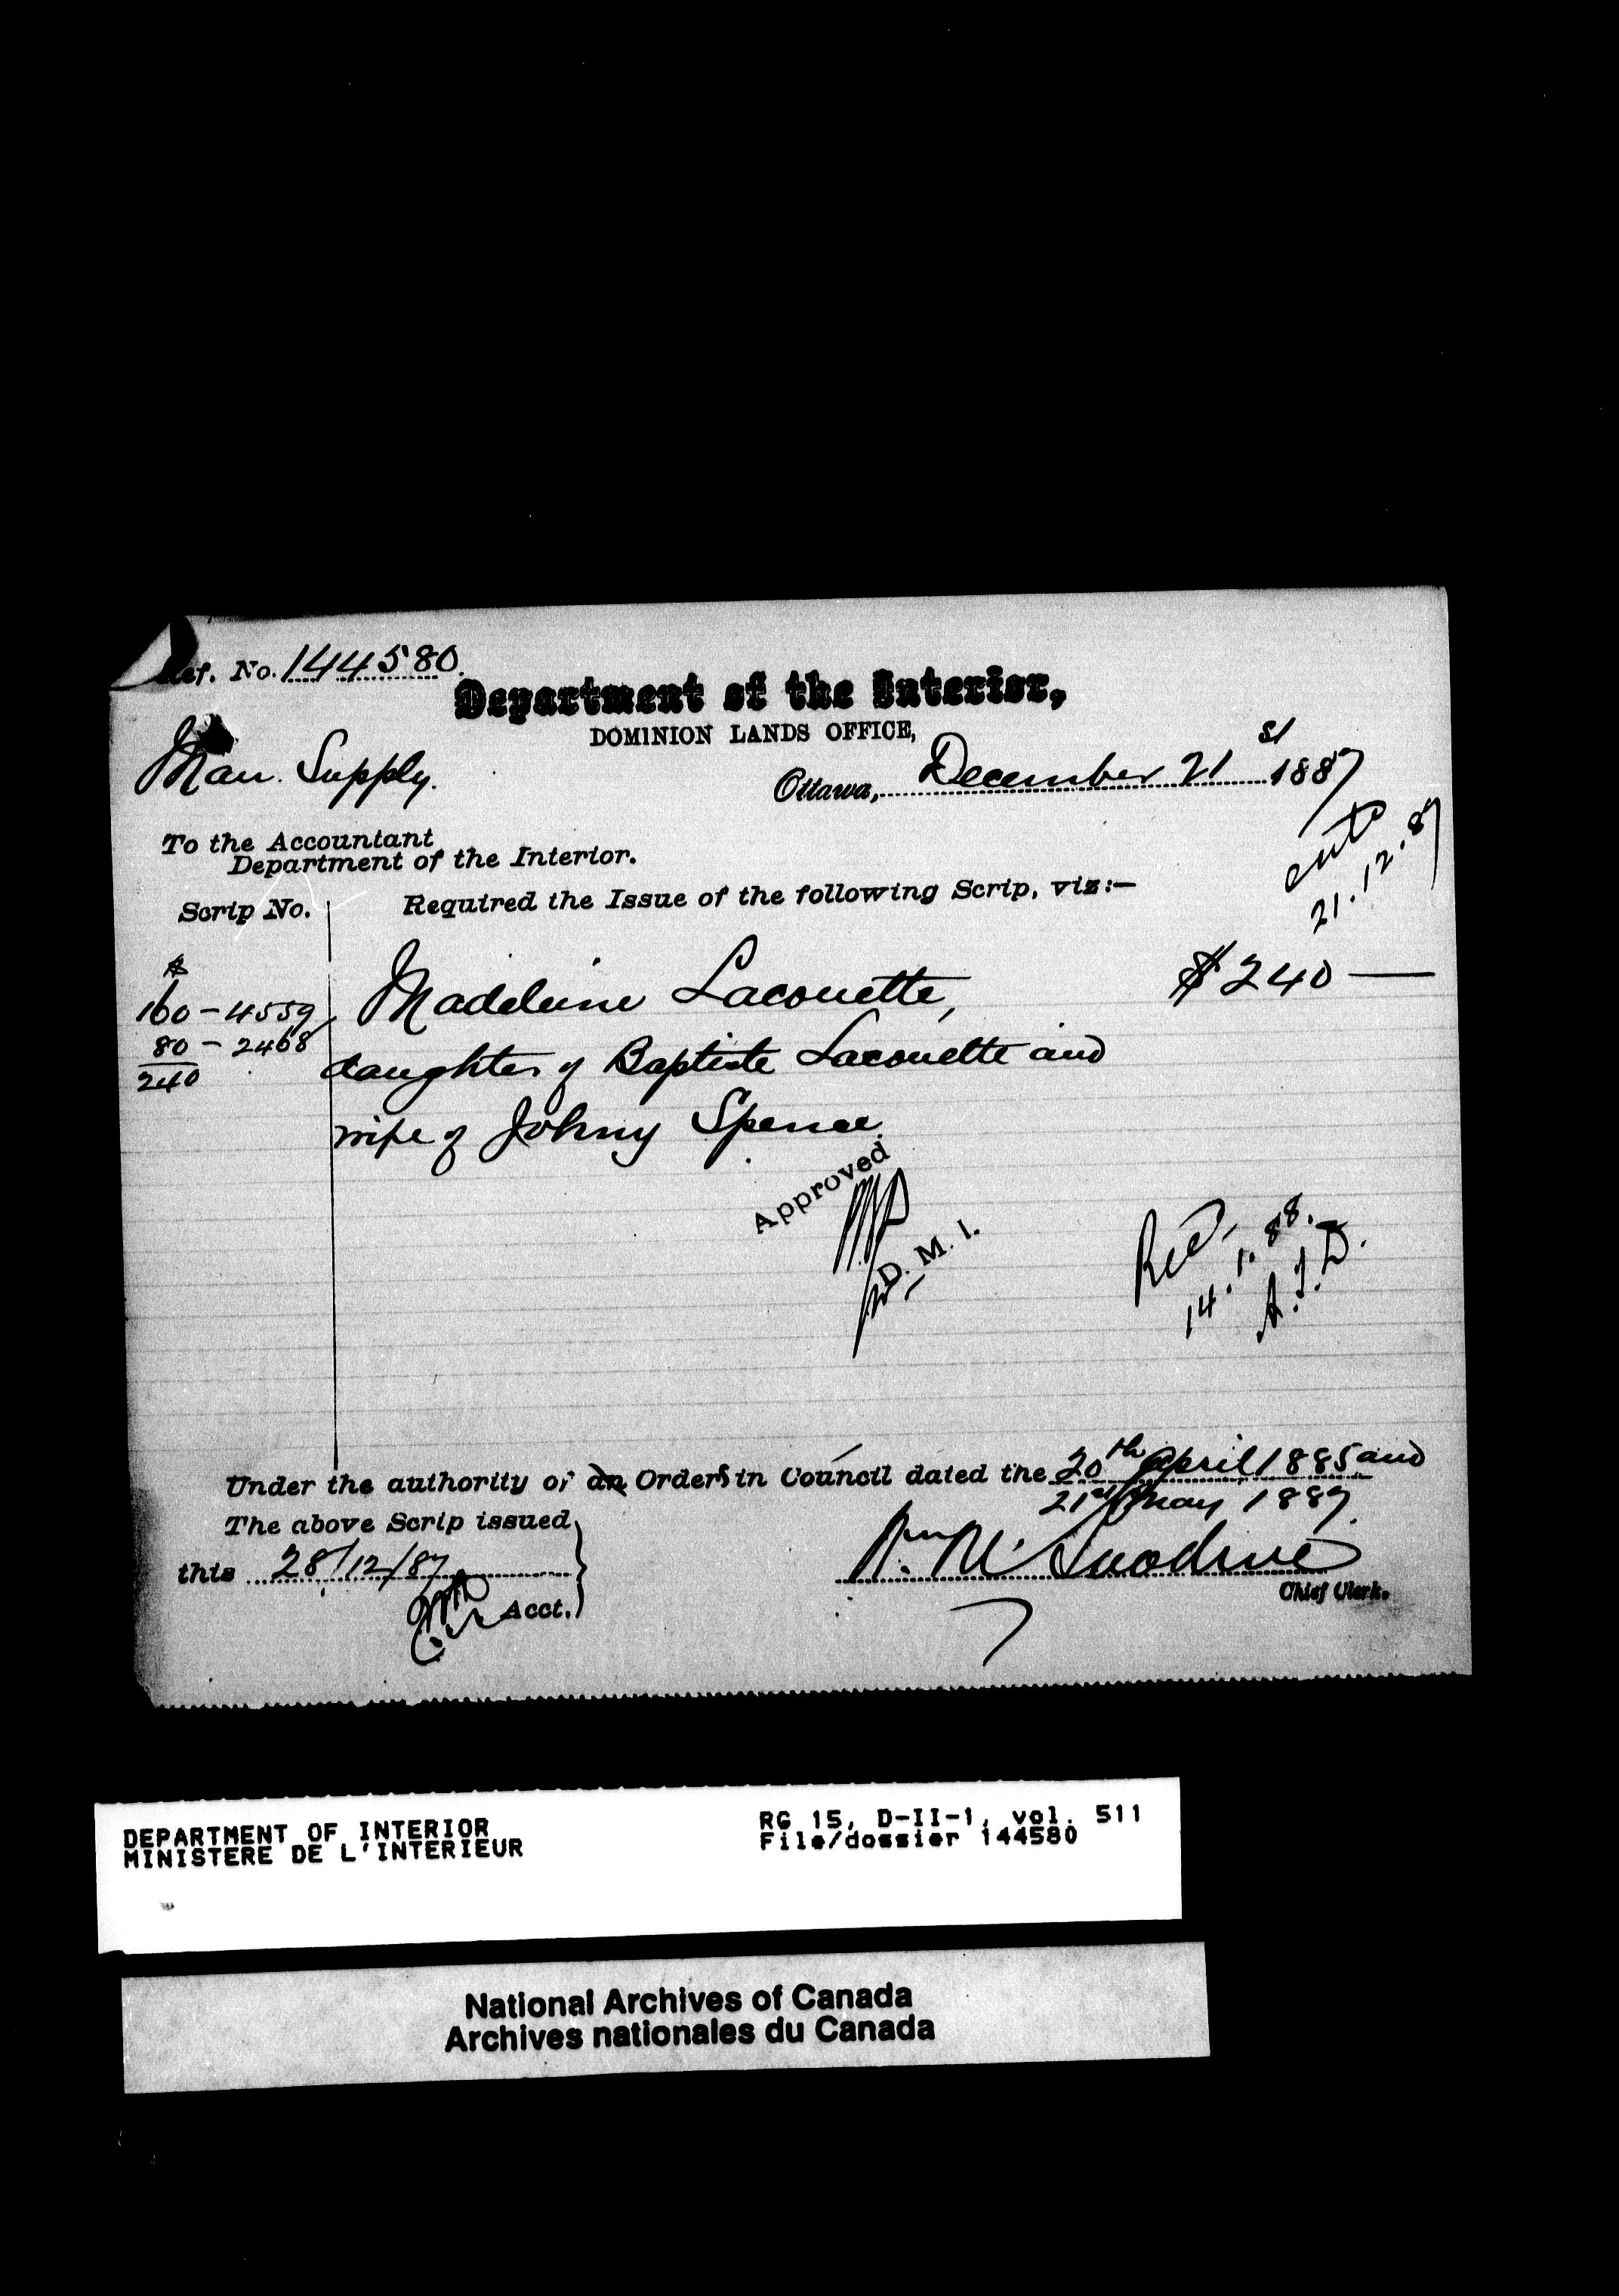 Ref. No. 144580.
Department of the Interior,
DOMINION LANDS OFFICE,
Man. Supply.
Ottawa, December 21st 1887
To the Accountant
Department of the Interior.
21.12.87
Scrip No. Required the Issue of the following Scrip, viz:—
$
160 - 4559 Madeleine Lacouette, $240 —
80 - 2468 daughter of Baptiste Lacouette and
240
wife of Johny Spence.
Approved
D. M. I.
Rec
14.1.88.
A.J.D.
Under the authority of an Orders in Council dated the 20th April 1885 and
21st May 1887.
The above Scrip issued
this 28/12/87
Acct.
Chief Clerk.
DEPARTMENT OF INTERIOR
MINISTERE DE L'INTERIEUR
RG 15, D-II-1, vol. 511
File/dossier 144580
National Archives of Canada
Archives nationales du Canada